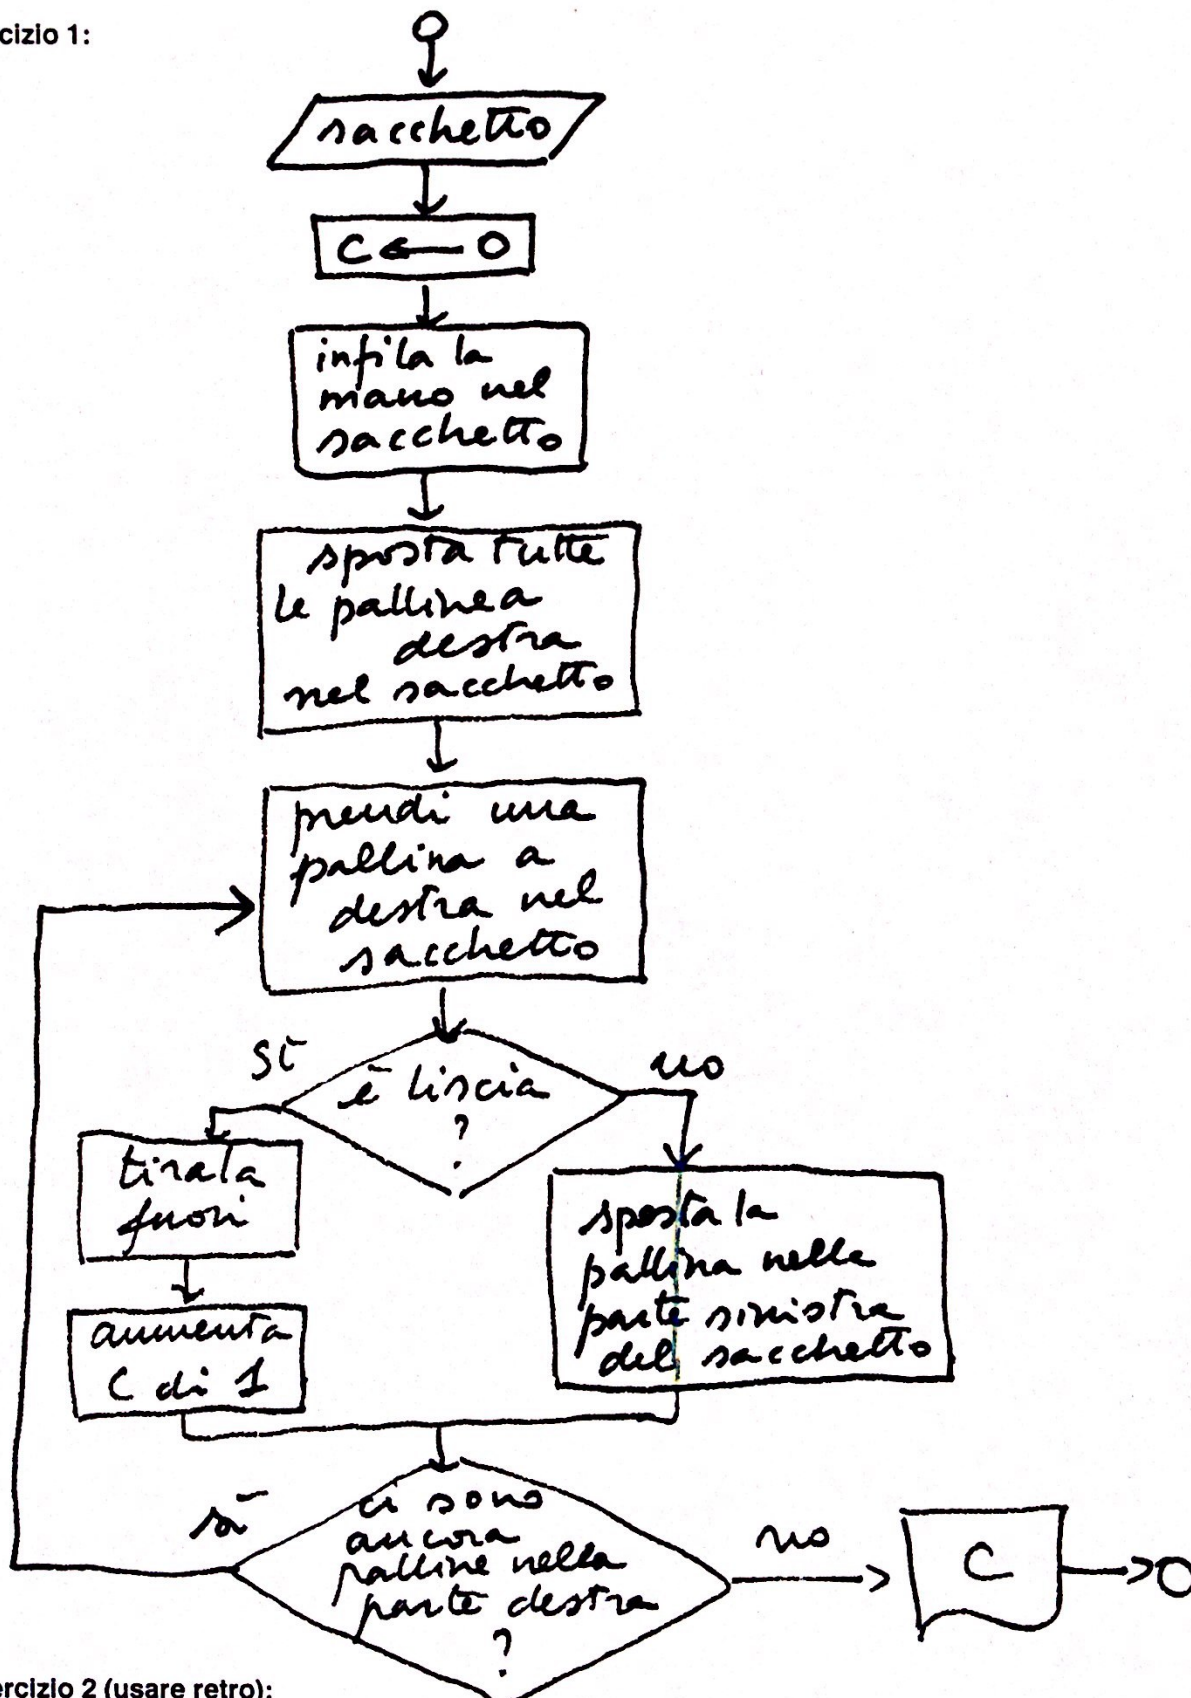 cizio 1:
sacchetto
C ← 0
infila la
mano nel
sacchetto
sposta tutte
le palline a
destra
nel sacchetto
prendi una
pallina a
destra nel
sacchetto
sì
no
è liscia
?
tirala
fuori
sposta la
pallina nella
parte sinistra
del sacchetto
aumenta
C di 1
ci sono
ancora
palline nella
parte destra
?
sì
no
C
ercizio 2 (usare retro):